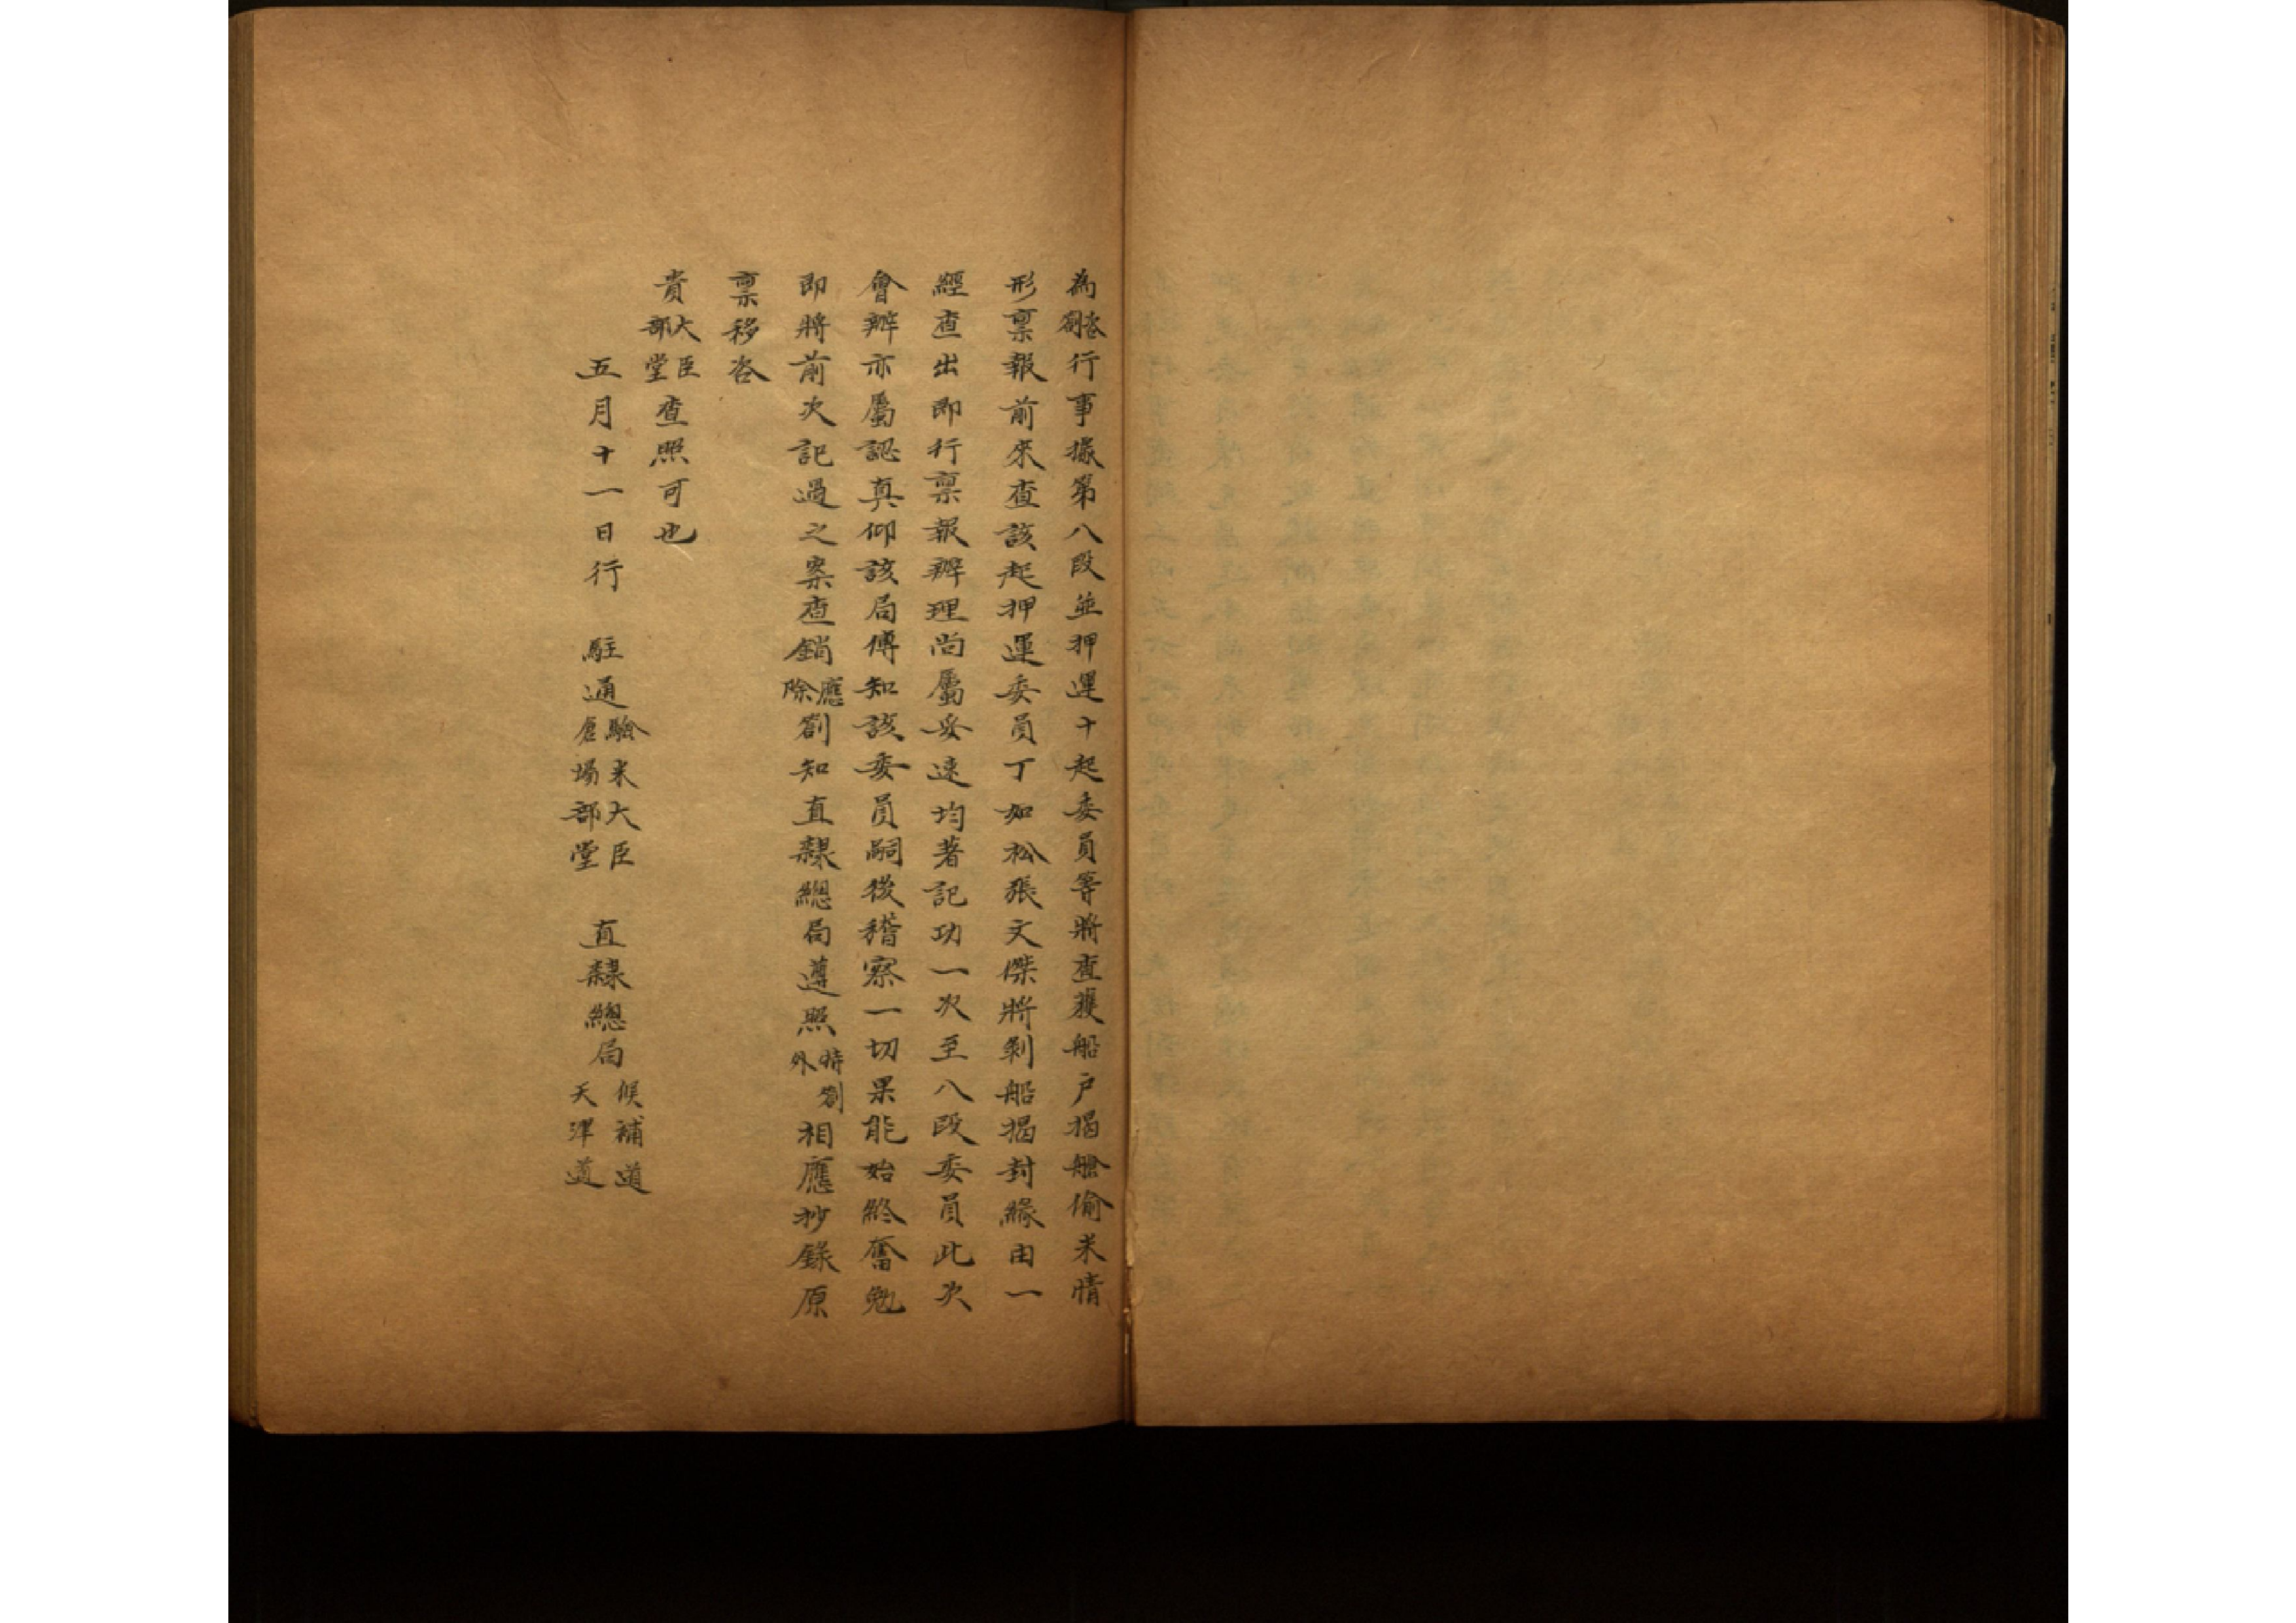 為咨劄行事據第八段並押運十起委員等將查獲船戶揭艙偷米情
形禀報前來查該起押運委員丁如松張文傑將剝船揭封緣由一
經查出即行禀報辦理尚屬妥速均著記功一次至八段委員此次
會辦亦屬認真仰該局傳知該委員嗣後稽察一切果能始終奮勉
即將前次記過之案查銷應除劄知直隸總局遵照特劄外相應抄錄原
禀移咨
貴大臣部堂查照可也
五月十一日行 駐通驗米大臣倉場部堂 直隸總局候補道天津道